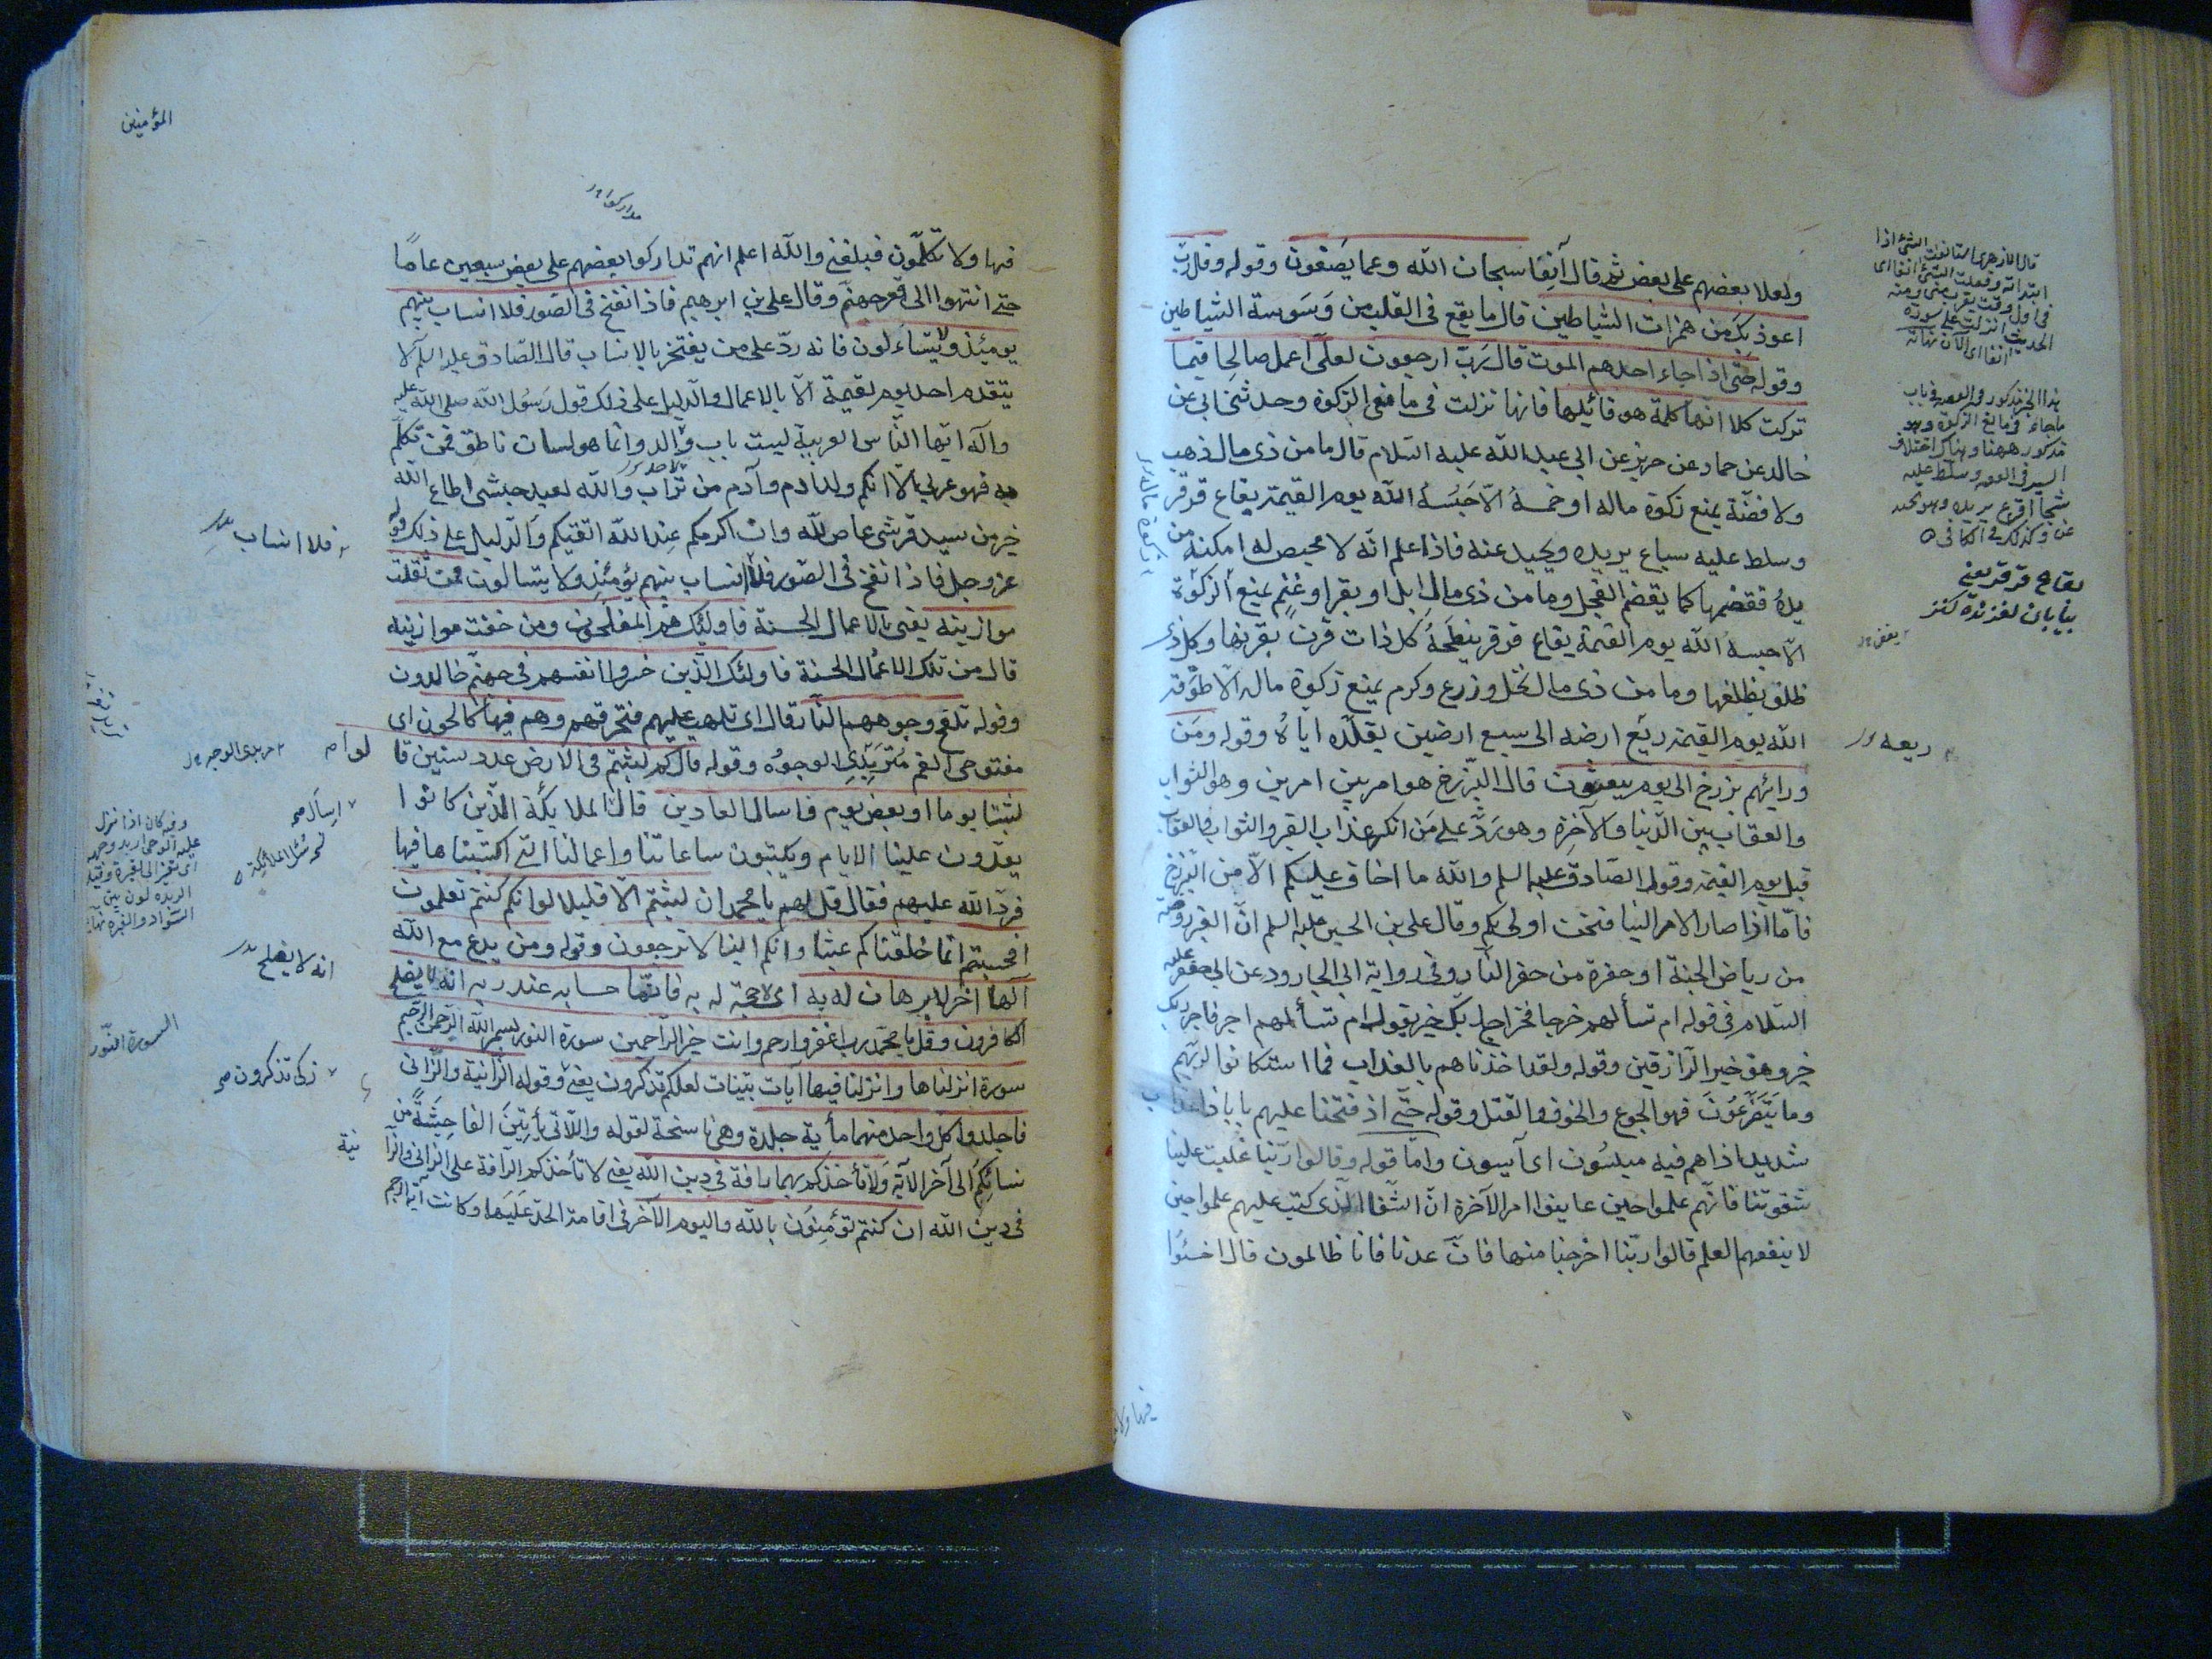 ولعلا بعضهم على بعض ثم قال آنفا سبحان الله وعما يصفون وقوله وقل رب
اعوذ بك من همزات الشياطين قال ما يقع في القلب من وسوسة الشياطين
وقوله حتى اذا جاء احدهم الموت قال رب ارجعون لعلى اعمل صالحا فيما
تركت كلا انها كلمة هو قائلها فانها نزلت في مانعى الزكوة وحدثنى ابى عن
خالد عن حماد عن حريز عن ابى عبد الله عليه السلام قال ما من ذى مال ذهب
ولا فضة يمنع زكوة ماله او خمسه الا حبسه الله يوم القيمة بقاع قرقر
وسلط عليه سباع يريده ويحيد عنه فاذا علم انه لا محيص له امكنه من
يده فقضمها كما يقضم الفجل وما من ذى مال ابل او بقر او غنم يمنع الزكوة
الا حبسه الله يوم القيمة بقاع قرقر ينطحه كل ذات قرن بقرنها وكل ذى
ظلف بظلفها وما من ذى مال نخل وزرع وكرم يمنع زكوة ماله الا طوقه
الله يوم القيمة ريع ارضه الى سبع ارضين يقلده اياه وقوله ومن
ورائهم برزخ الى يوم يبعثون قال البرزخ هو امر بين امرين وهو الثواب
والعقاب بين الدنيا والآخرة وهو رد على من انكر عذاب القبر والثواب والعقاب
قبل يوم القيمة وقول الصادق عليه السلم والله ما اخاف عليكم الا من البرزخ
فاما اذا صار الامر الينا فنحن اولى بكم وقال على بن الحسين عليه السلم ان القبر روضة
من رياض الجنة او حفرة من حفر النار وفى رواية ابى الجارود عن ابى جعفر عليه
السلام في قوله ام تسألهم خرجا فخراج ربك خير يقول ام تسألهم اجرا فاجر ربك
خير وهو خير الرازقين وقوله ولقد اخذناهم بالعذاب فما استكانوا لربهم
وما يتضرعون فهو الجوع والخوف والقتل وقوله حتى اذ فتحنا عليهم بابا ذا عذاب
شديد اذا هم فيه مبلسون اى آيسون واما قوله وقالوا ربنا غلبت علينا
شقوتنا فانهم علموا حين عاينوا امر الآخرة ان الشقا الذى كتب عليهم علموا حين
لا ينفعهم العلم قالوا ربنا اخرجنا منها فان عدنا فانا ظالمون قال اخسئوا
قال الازهرى استانفت الشئ اذا
ابتدأته وفعلت الشئ انفا اى
في اول وقت يقرب منى ومنه
الحديث انزلت على سورة
انفا اى الآن نهاية
بقاع قرقر يعنى
بيابان لغزنده
ريعه
المؤمنين
فيها ولا تكلمون فبلغنى والله اعلم انهم تداركوا بعضهم على بعض سبعين عاما
حتى انتهوا الى قعر جهنم وقال على بن ابرهيم فاذا نفخ في الصور فلا انساب بينهم
يومئذ ولا يتساءلون فانه رد على من يفتخر بالانساب قال الصادق عليه السلم لا
يتقدم احد يوم القيمة الا بالاعمال والدليل على ذلك قول رسول الله صلى الله عليه
وآله ايها الناس العربية ليست باب والد وانما هو لسان ناطق فمن تكلم
به فهو عربى الا انكم ولد آدم وآدم من تراب والله لعبد حبشى اطاع الله
خير من سيد قرشى عاص لله وان اكرمكم عند الله اتقيكم والدليل على ذلك قوله
عز وجل فاذا نفخ في الصور فلا انساب بينهم يومئذ ولا يتسالون فمن ثقلت
موازينه يعنى بالاعمال الحسنة فاولئك هم المفلحون ومن خفت موازينه
قال من تلك الاعمال الحسنة فاولئك الذين خسروا انفسهم في جهنم خالدون
وقوله تلفح وجوههم النار قال اى تلهب عليهم فتحرقهم وهم فيها كالحون اى
مفتوحى الفم متربدى الوجوه وقوله قال كم لبثتم في الارض عدد سنين قا لوا
لبثنا يوما او بعض يوم فاسال العادين قال سل الملايكة الذين كانوا
يعدون علينا الايام ويكتبون ساعاتنا واعمالنا التى اكتسبناها فيها
فرد الله عليهم فقال قل لهم يا محمد ان لبثتم الا قليلا لو انكم كنتم تعلمون
افحسبتم انما خلقناكم عبثا وانكم الينا لا ترجعون وقوله ومن يدع مع الله
الها اخر لا برهان له به اى لا حجة له به فانما حسابه عند ربه انه لا يفلح
الكافرون وقل يا محمد رب اغفر وارحم وانت خير الراحمين سورة النور بسم الله الرحمن الرحيم
سورة انزلناها وانزلنا فيها آيات بينات لعلكم تذكرون يعنى وقوله الزانية والزانى
فاجلدوا كل واحد منهما مأية جلدة وهى ناسخة لقوله واللاتى يأتين الفاحشة من
نسائكم الى آخر الآية ولا تأخذكم بهما رافة في دين الله يعنى لا تأخذكم الرافة على الزانى والزا نية
في دين الله ان كنتم تؤمنون بالله واليوم الآخر في اقامة الحد عليهما وكانت آية الرجم
فلا انساب
انه لا يفلح
السورة النور
فيها ولا